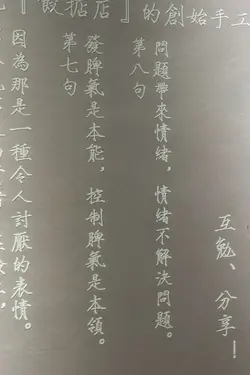 店』的創始手工
因為那是一種令人討厭的表情。
第七句
發脾氣是本能，控制脾氣是本領。
第八句
問題帶來情緒，情緒不解決問題。
互勉、分享！